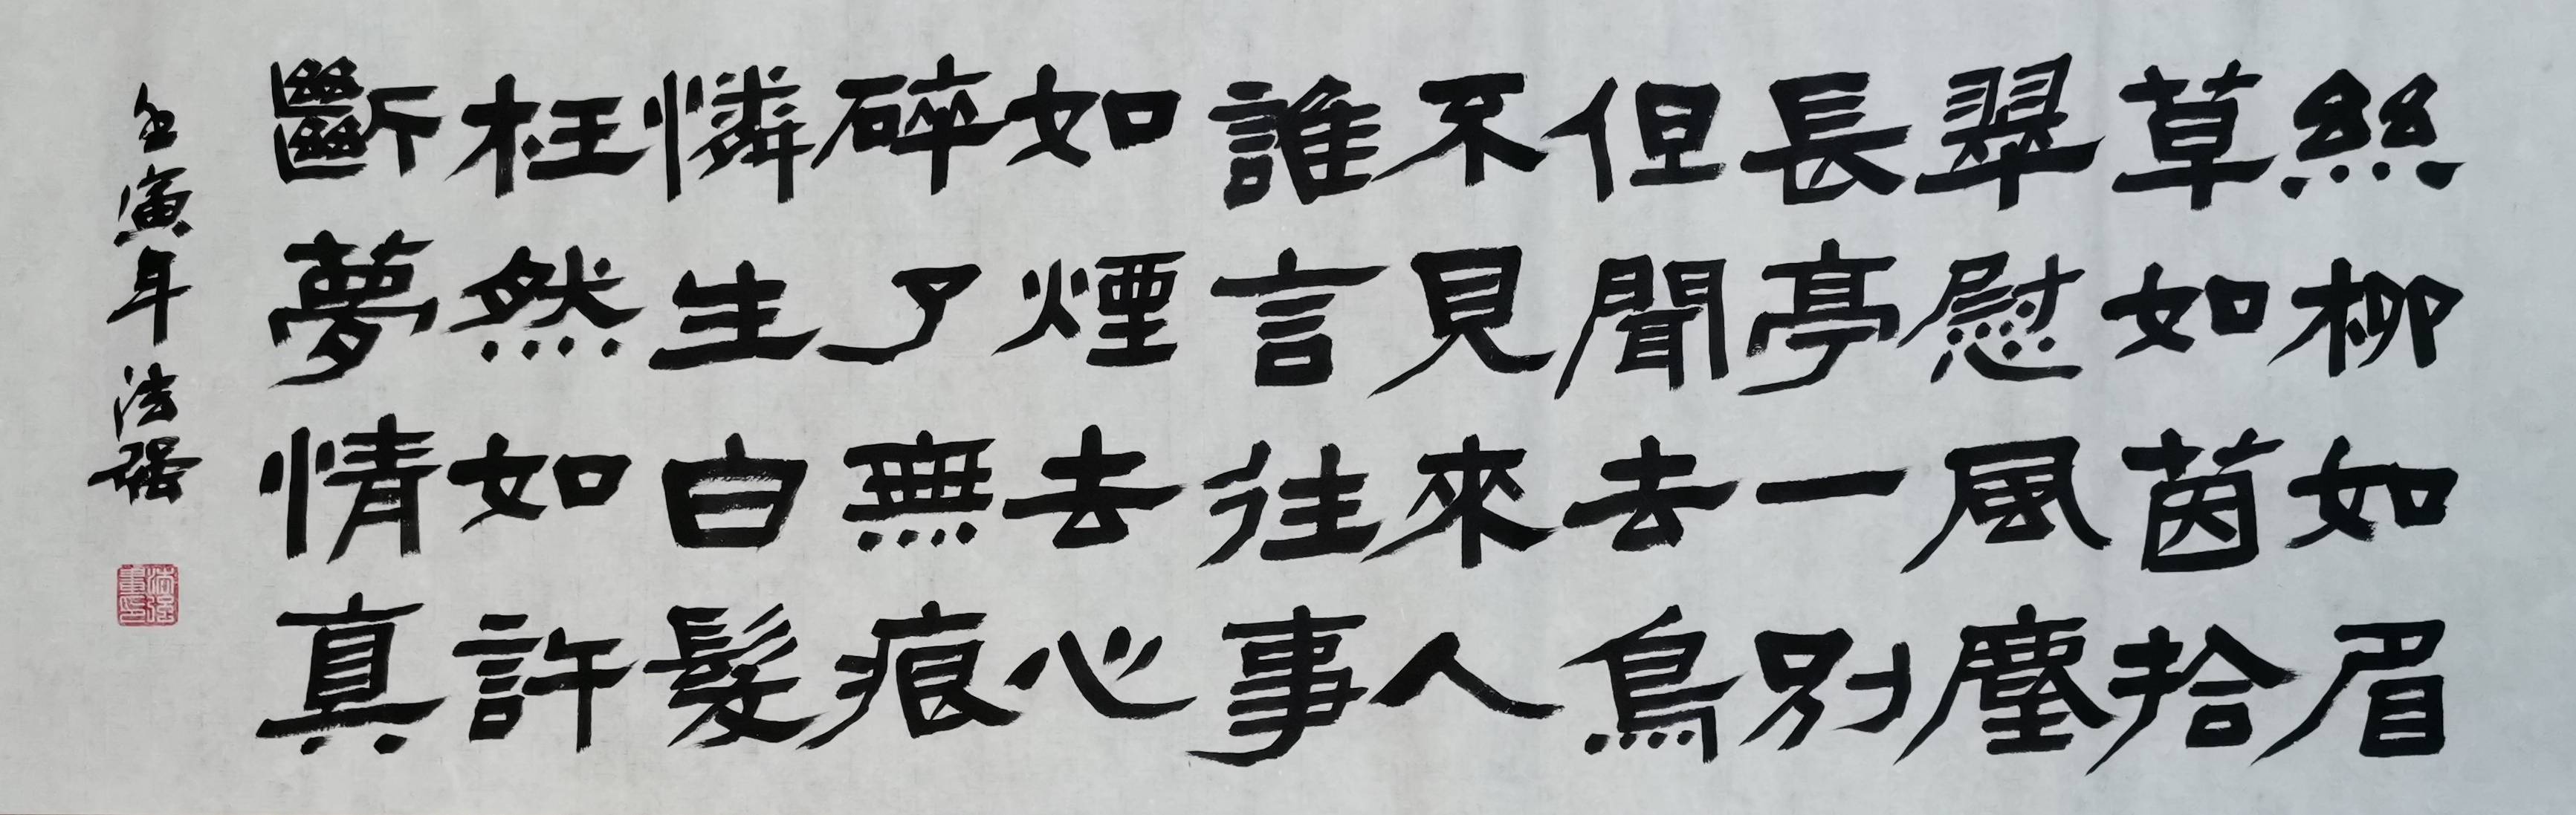 絲柳如眉
草如茵拾
翠慰風塵
長亭一別
但聞去鳥
不見來人
誰言往事
如煙去心
碎了無痕
憐生白髮
枉然如許
斷夢情真
壬寅年法強